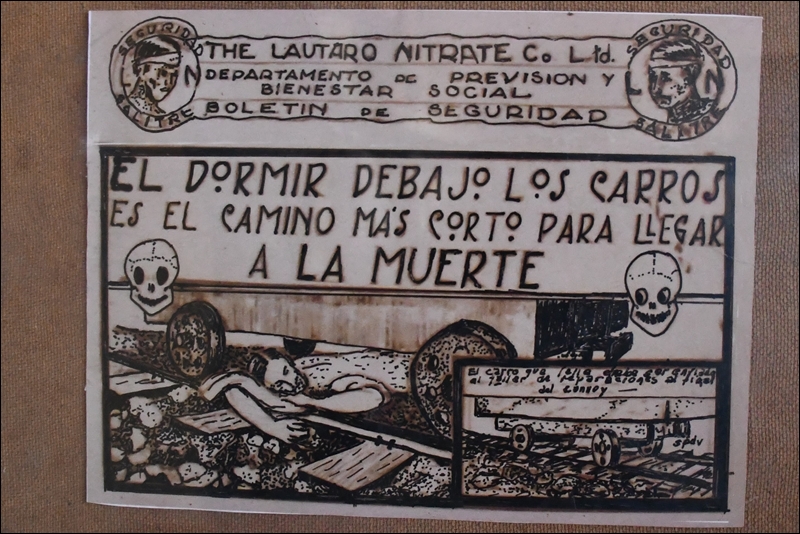 SEGURIDAD
L N
SALITRE
THE LAUTARO NITRATE Co Ltd.
DEPARTAMENTO DE PREVISION Y
BIENESTAR SOCIAL
BOLETIN DE SEGURIDAD
SEGURIDAD
L N
SALITRE
EL DORMIR DEBAJO LOS CARROS
ES EL CAMINO MÁS CORTO PARA LLEGAR
A LA MUERTE
El carro que falla debe ser enviado
al taller de reparaciones al final
del convoy
spdv